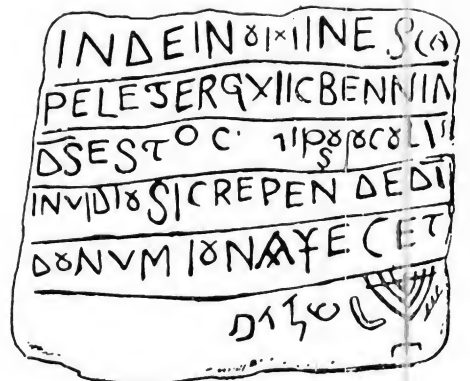 INDEINOMINE SCO
PELEGERQVIICBENNID
DSESTO C· NIPSOOCOLI
INVIDIOSICREPEN DEDI
DONVM IONA FECET
שלום